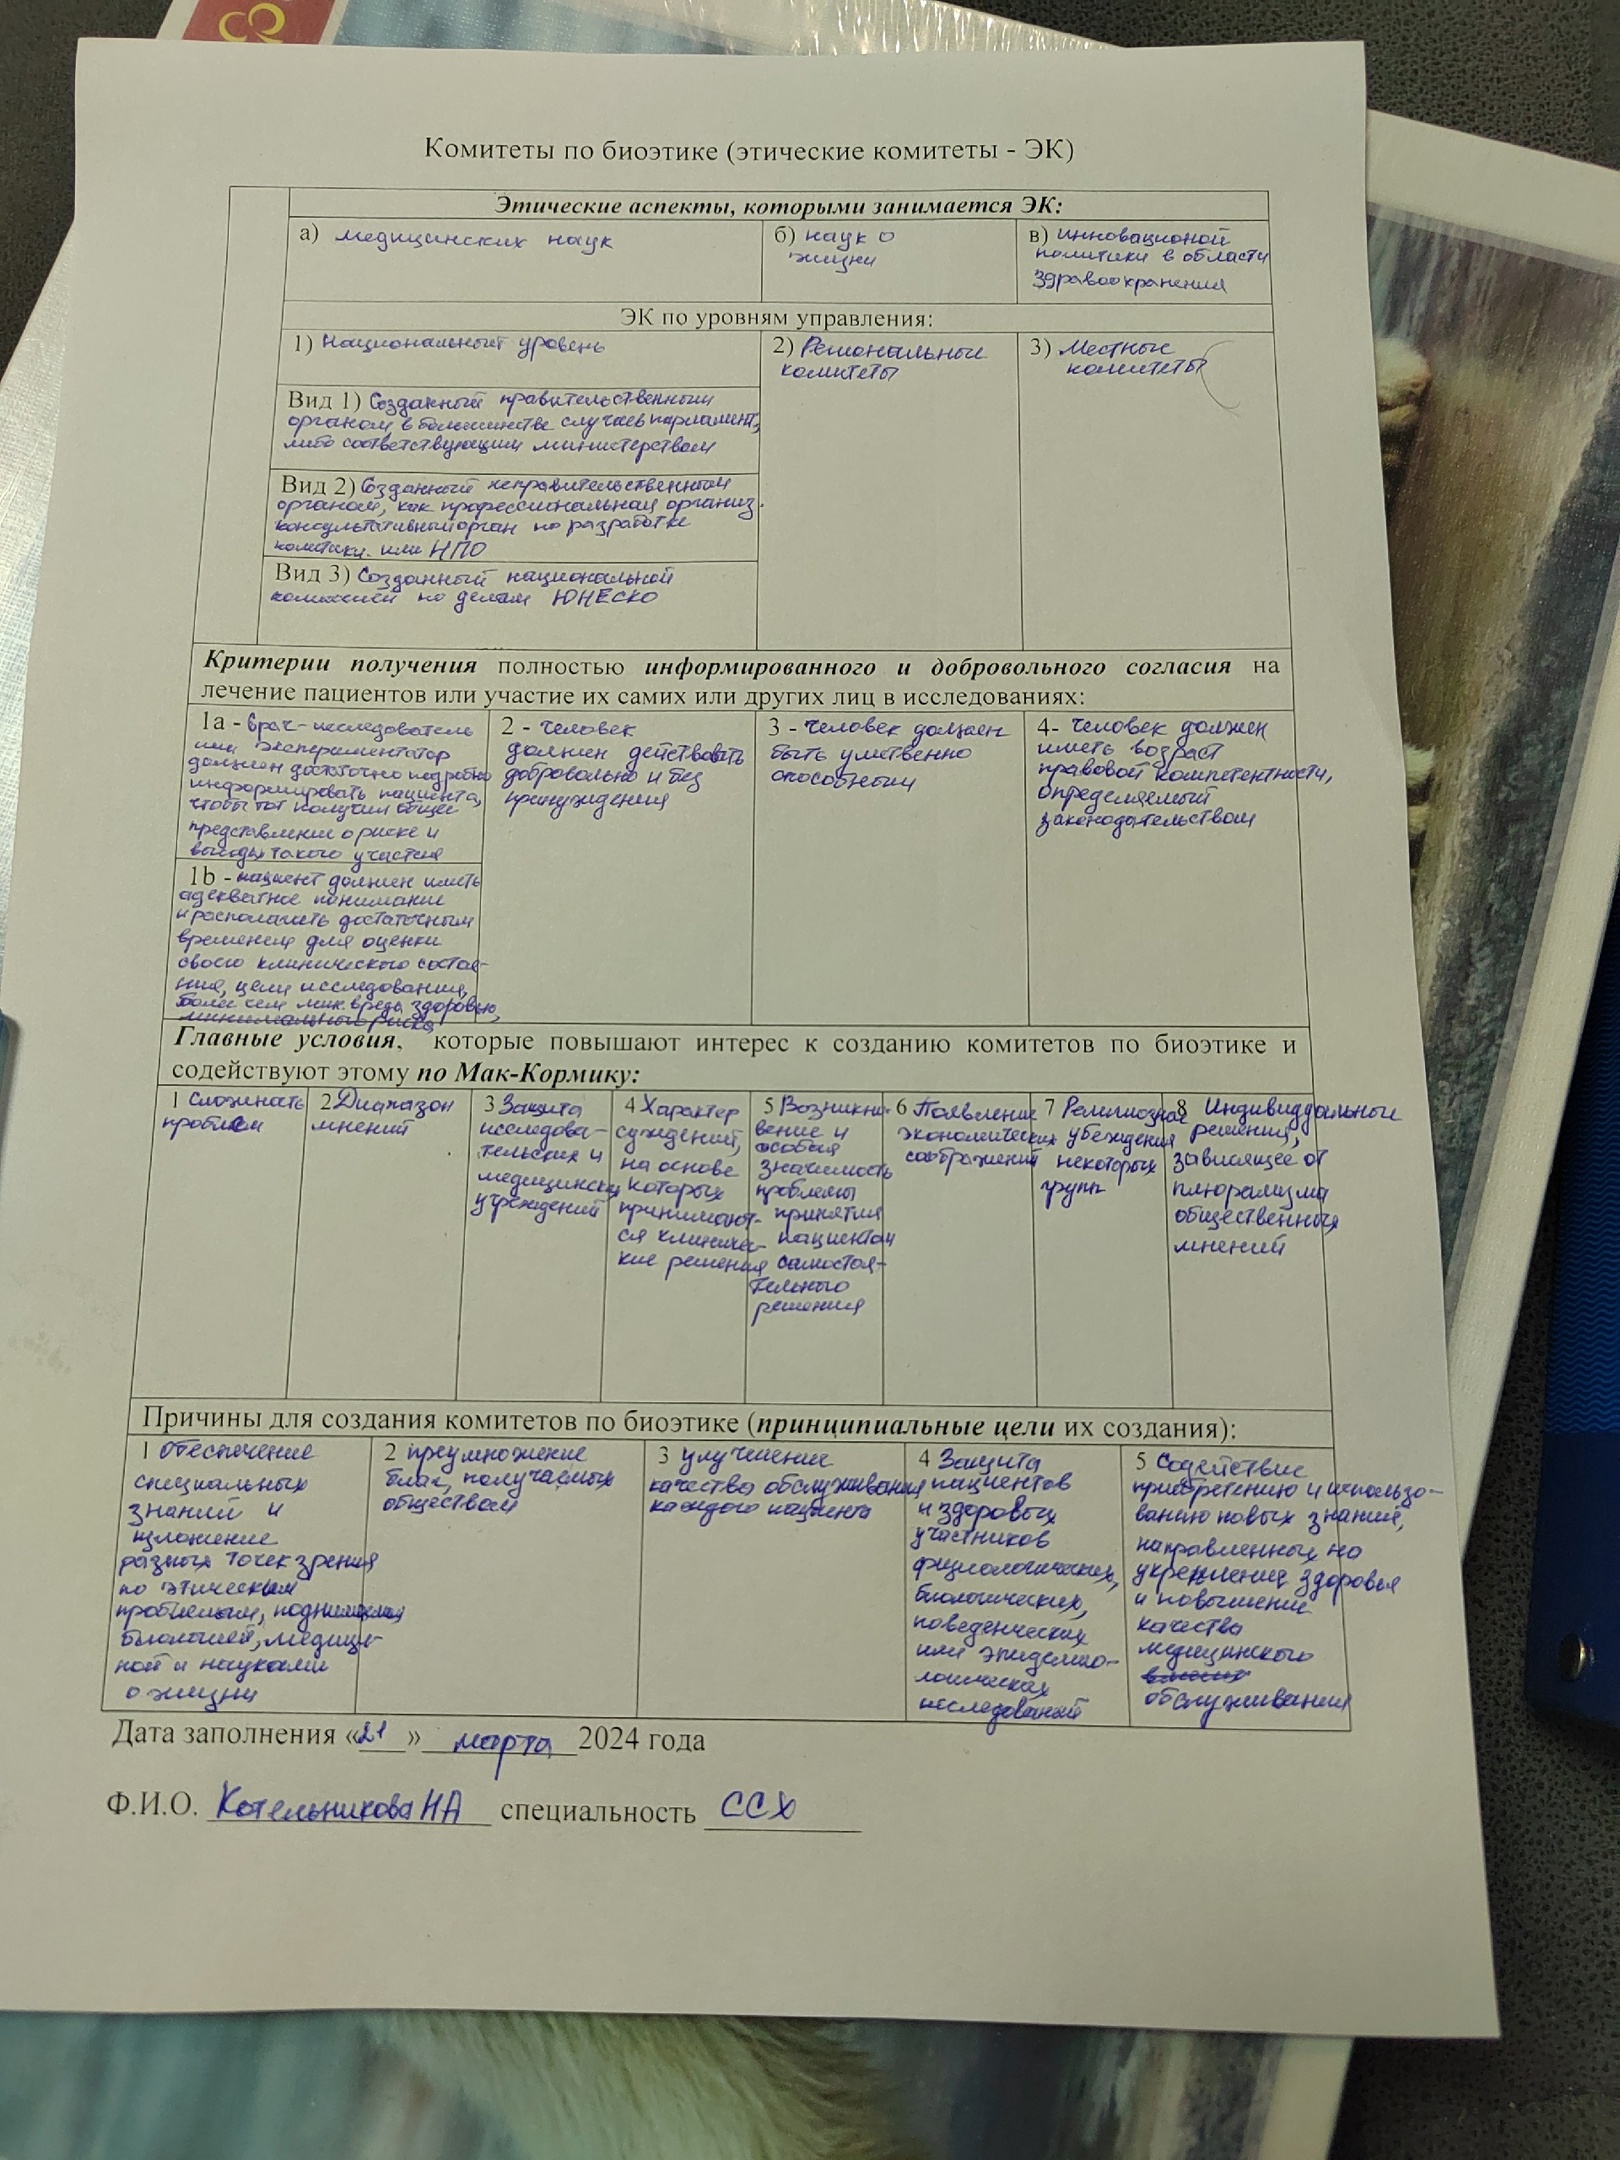 Комитеты по биоэтике (этические комитеты - ЭК)
Этические аспекты, которыми занимается ЭК:
а) медицинских наук
б) наук о
жизни
в) инновационой
политики в области
здравоохранения
ЭК по уровням управления:
1) Национальный уровень
2) Региональные
комитеты
3) Местные
комитеты
Вид 1) Созданный правительственным
органом, в большинстве случаев парламент,
либо соответствующим министерством
Вид 2) Созданный неправительственным
органом, как профессиональная организ.
консультативный орган по разработке
политики. или НПО
Вид 3) Созданный национальной
комиссией по делам ЮНЕСКО
Критерии получения полностью информированного и добровольного согласия на
лечение пациентов или участие их самих или других лиц в исследованиях:
1а - врач-исследователь
или экспериментатор
должен достаточно подробно
информировать пациента,
чтобы тот получил общее
представление о риске и
выгоды такого участия
1b - пациент должен иметь
адекватное понимание
и располагать достаточным
временем для оценки
своего клинического состоя-
ния, цели исследования,
более чем мин. вреда здоровью,
минимального риска
2 - человек
должен действовать
добровольно и без
принуждения
3 - человек должен
быть умственно
способным
4- человек должен
иметь возраст
правовой компетентности,
определяемый
законодательством
Главные условия, которые повышают интерес к созданию комитетов по биоэтике и
содействуют этому по Мак-Кормику:
1 Сложность
проблем
2 Диапазон
мнений
3 Защита
исследова-
тельских и
медицинских
учреждений
4 Характер
суждений,
на основе
которых
принимают-
ся клиничес-
кие решения
5 Возникно-
вение и
особая
значимость
проблемы
принятия
пациентом
самостоя-
тельного
решения
6 Появление
экономических
соображений
7 Религиозные
убеждения
некоторых
групп
8 Индивидуальные
решения,
зависящее от
плюрализма
общественных
мнений
Причины для создания комитетов по биоэтике (принципиальные цели их создания):
1 Обеспечение
специальных
знаний и
изложение
разных точек зрения
по этическим
проблемам, поднимаемых
биологией, медици-
ной и науками
о жизни
2 преумножение
благ, получаемых
обществом
3 улучшение
качества обслуживания
каждого пациента
4 Защита
пациентов
и здоровых
участников
физиологических,
биологических,
поведенческих
или эпидемио-
логических
исследований
5 Содействие
приобретению и использо-
ванию новых знаний,
направленных на
укрепление здоровья
и повышение
качества
медицинского
обслуживания
Дата заполнения «21» марта 2024 года
Ф.И.О. Котельникова НА специальность ССХ